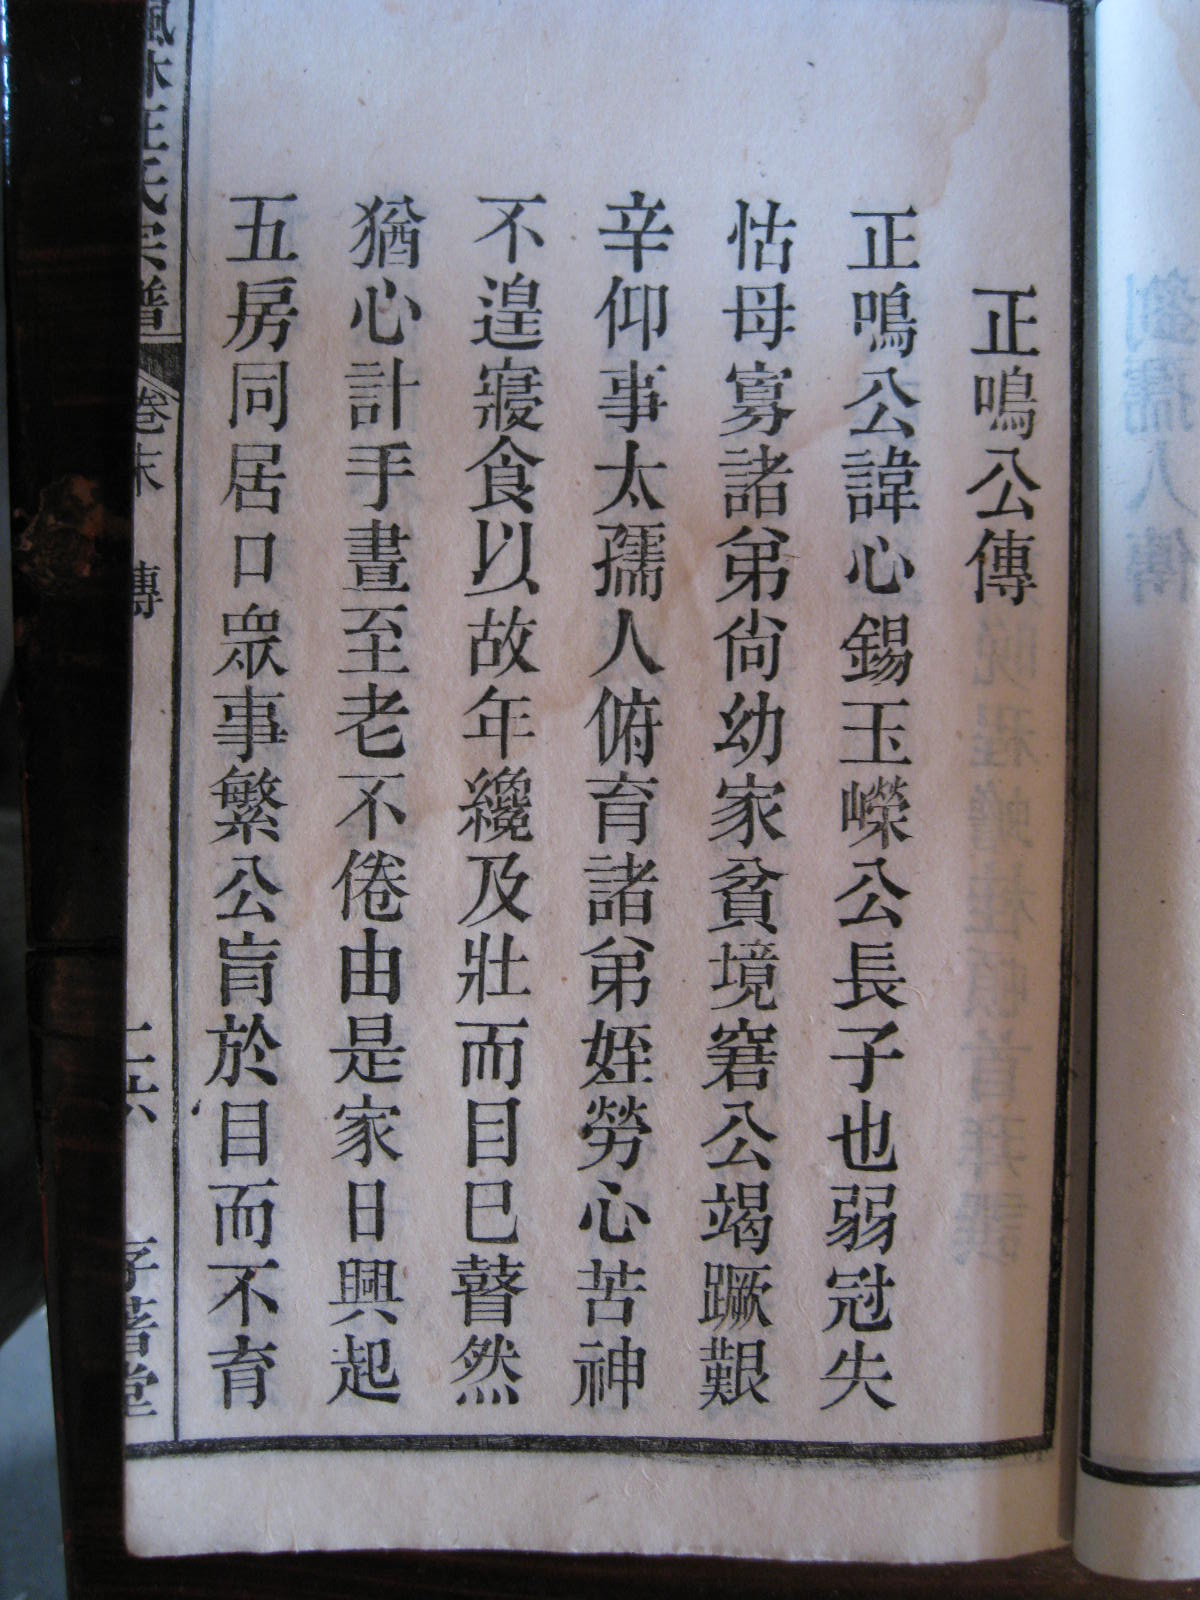 正鳴公傳
正鳴公諱心錫玉嶸公長子也弱冠失
怙母寡諸弟尙幼家貧境窘公竭蹶艱
辛仰事太孺人俯育諸弟姪勞心苦神
不遑寢食以故年纔及壯而目已瞽然
猶心計手畫至老不倦由是家日興起
五房同居口眾事繁公盲於目而不盲
楓林汪氏宗譜
卷末
傳